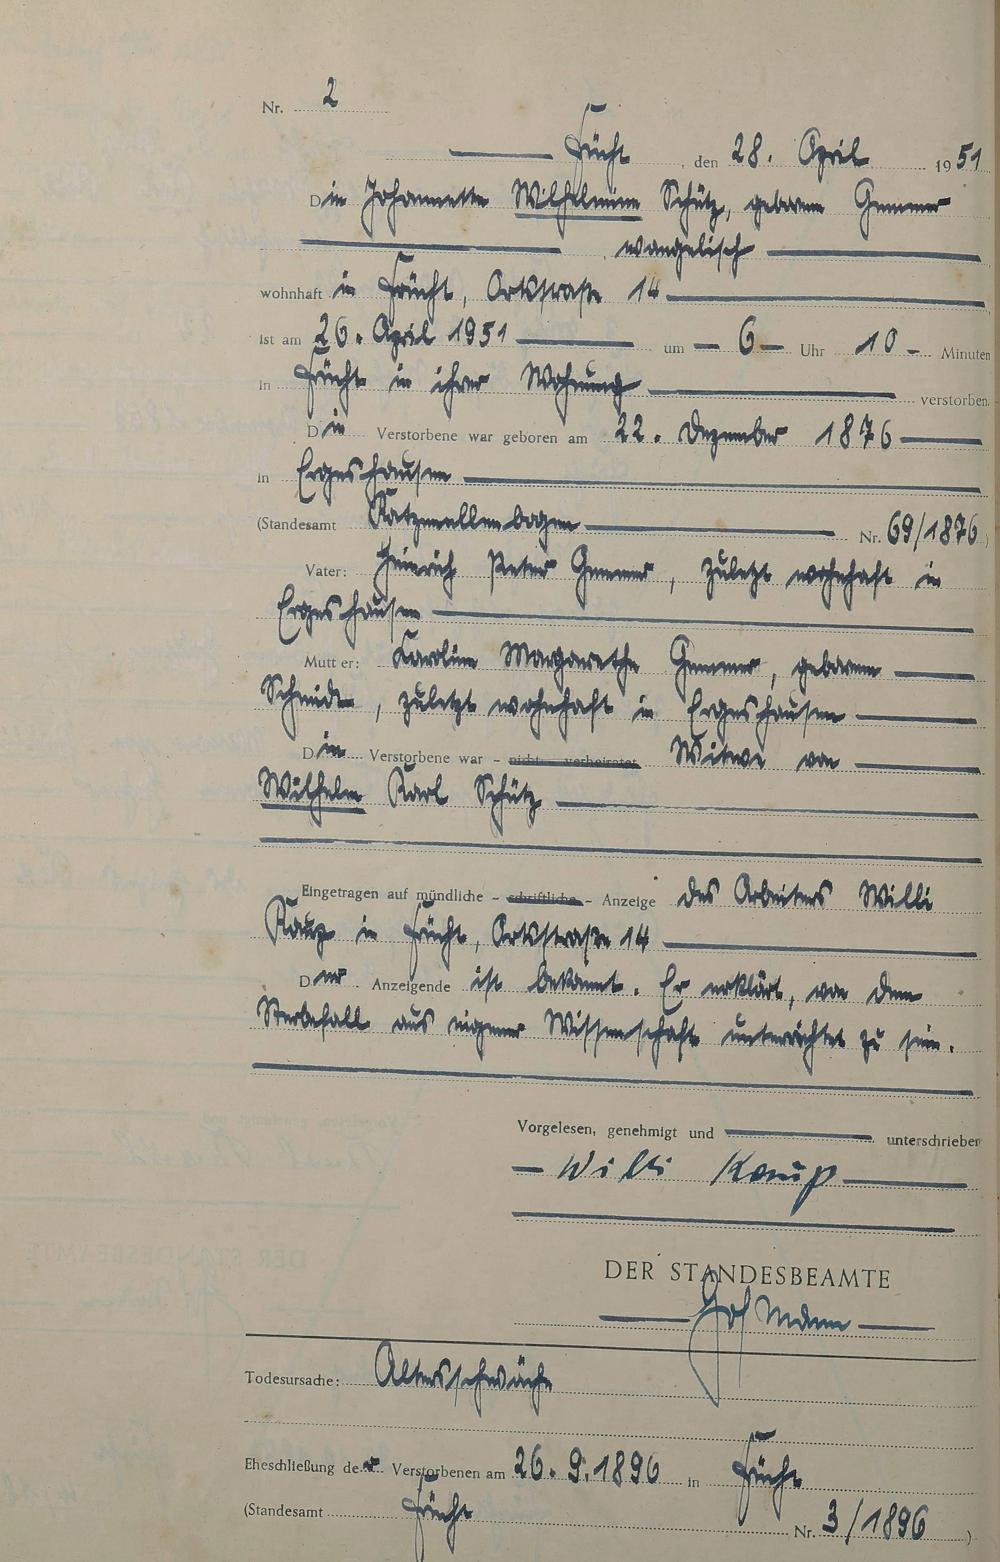 Nr. 2
Frücht, den 28. April 1951
Die Johannette Wilhelmine Schütz, geborene Gemmer
evangelisch
wohnhaft in Frücht, Ortsstraße 14
ist am 26. April 1951 um 6 Uhr 10 Minuten
in Frücht in ihrer Wohnung verstorben.
Die Verstorbene war geboren am 22. Dezember 1876
in Ergeshausen
(Standesamt Katzenellenbogen Nr. 69/1876)
Vater: Heinrich Peter Gemmer, zuletzt wohnhaft in
Ergeshausen
Mutter: Karoline Margarethe Gemmer, geborene
Schmidt, zuletzt wohnhaft in Ergeshausen
Die Verstorbene war – nicht – verheiratet Witwe von
Wilhelm Karl Schütz
Eingetragen auf mündliche – schriftliche – Anzeige des Arbeiters Willi
Kaup in Frücht, Ortsstraße 14
Der Anzeigende ist bekannt. Er erklärt, von dem
Sterbefall aus eigener Wissenschaft unterrichtet zu sein.
Vorgelesen, genehmigt und unterschrieben
Willi Kaup
DER STANDESBEAMTE
Todesursache: Altersschwäche
Eheschließung der Verstorbenen am 26. 9. 1896 in Frücht
(Standesamt Frücht Nr. 3/1896)